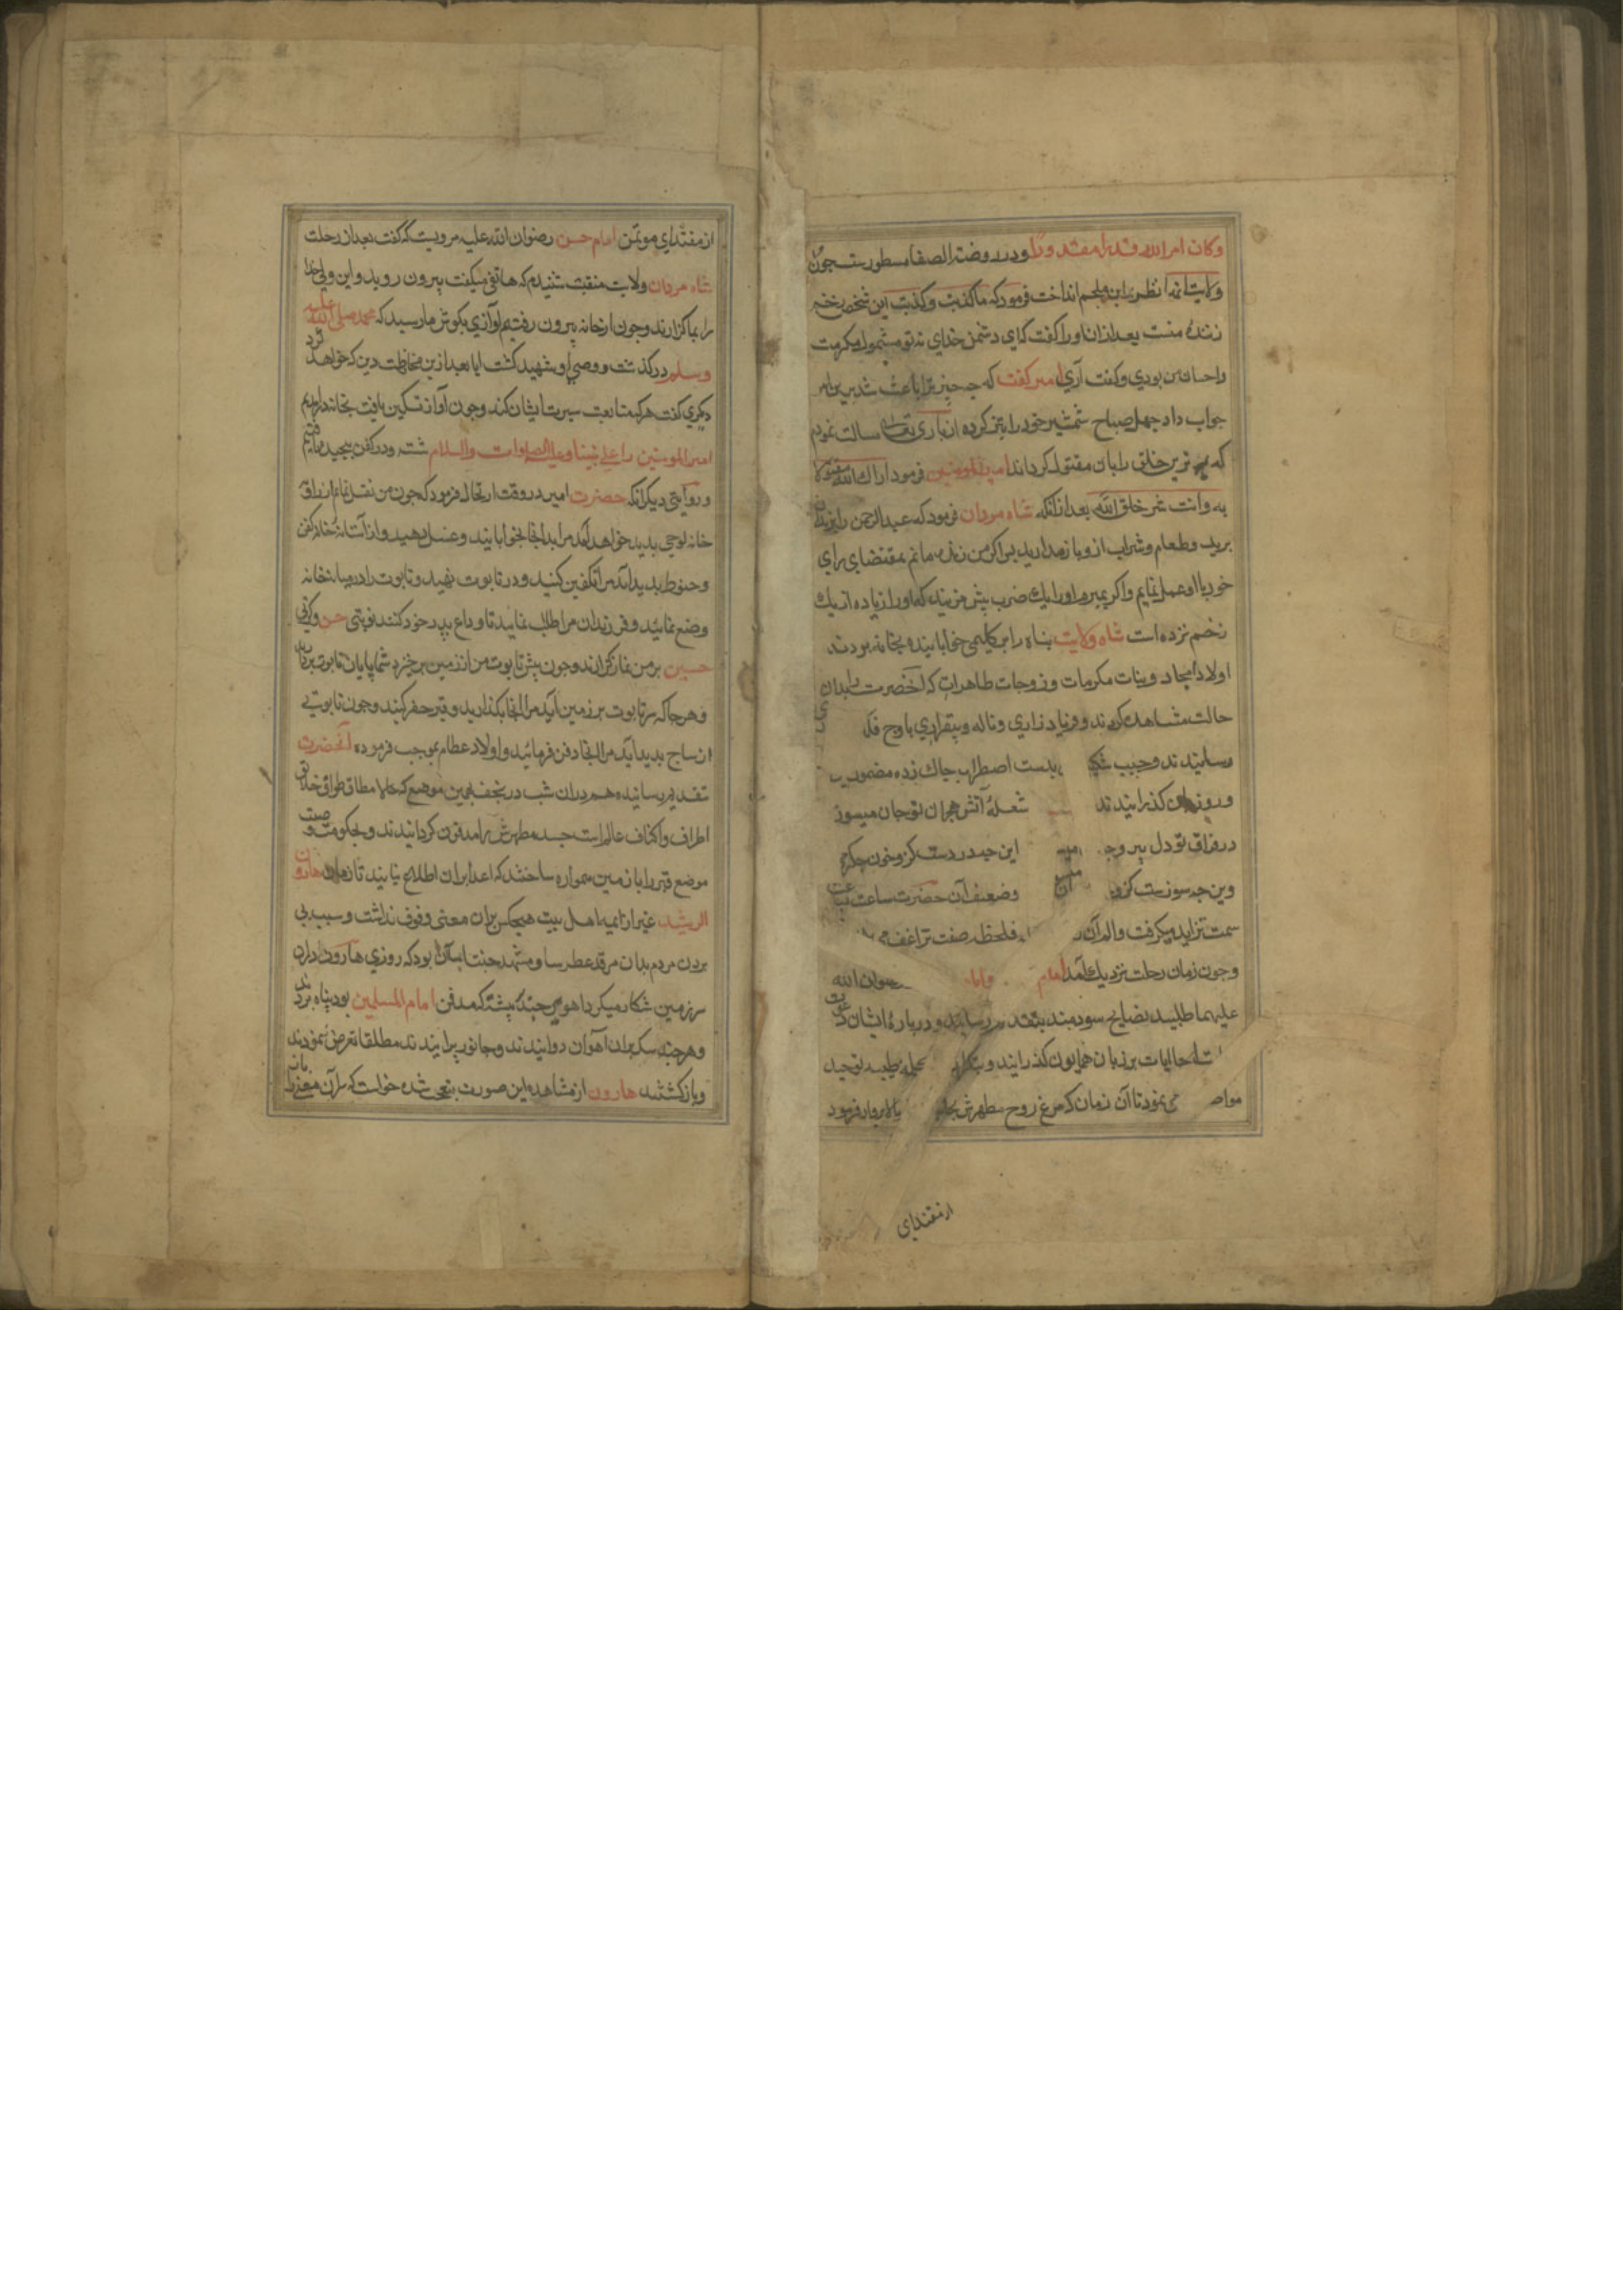 وکان امر الله قدرا مقدورا ودر روضة الصفا مسطورست جون
ولایت‌پناه نظر بر ابن ملجم انداخت فرمود که ما کذبت وکذبت این شخص
زنندهٔ منست بعد ازان او را گفت که ای دشمن خدای نه تو مشمول مکرمت
واحسان من بودی وگفت آری امیر گفت که چه چیز ترا باعث شد برین امر
جواب داد چهل صباح شمشیر خود را تیز کرده از باری تعالی مسالت نمودم
که بدترین خلق را بان مقتول گرداند امیرالمومنین فرمود اراک الله مقتولا
به وانت شر خلق الله بعد از انکه شاه مردان فرمود که عبدالرحمن را بزندان
برید وطعام وشراب ازو باز مدارید بس اکر من زنده مانم بمقتضای رای
خود با او عمل نمایم واکر بمیرم او را یک ضرب بیش مزنید که او را زیاده از یک
زخم نزده است شاه ولایت بناه را بر کلیمی خوابانیده بخانه بردند
اولاد امجاد وبنات مکرمات وزوجات طاهرات که آنحضرت را بدان
حالت مشاهده کردند وفریاد زاری وناله وبیقراری باوج فلک
رسانیدند وجیب بدست اضطراب چاک زده مضمون
وروز کذرانیدند شعلهٔ آتش هجران تو جان میسوزد
در فراق تو دل این چه دردست کزو خون جکر
وین چه سوزست کزو وضعف آن حضرت ساعت
سمت تزاید میکرفت والم آن فلحظه صفت تراعف
وجون زمان رحلت نزدیک آمد امام رضوان الله
علیهما طلبید نصایح سودمند بتقدیم رسانید ودر بارهٔ ایشان
برزبان همایون کذرانید وبتکرار کلمه طیبه توحید
می نمود تا آن زمان که مرغ روح مطهرش بعالم بالا پرواز فرمود
از مقتدای
از مقتدای موتمن امام حسن رضوان الله علیه مرویست که گفت بعد از رحلت
شاه مردان ولایت منقبت شنیدم که هاتفی میکفت بیرون روید واین ولی خدا
را بما کزارند وجون از خانه بیرون رفتیم آوازی بکوش ما رسید که محمد صلی الله علیه
وسلم درکذشت ووصی او شهید کشت ایا بعد ازین محافظت دین که خواهد کرد
دیکری کفت هر که متابعت سیرت ایشان کند وجون آواز تسکین یافت بخانه درآمدیم
امیرالمومنین را علی نبینا وعلیه الصلوات والسلام شسته ودر کفن بیچیده یافتیم
وروایتی دیکر آنکه حضرت امیر در وقت ارتحال فرمود که جون من نقل نمایم از رواق
خانه لوحی بدید خواهد آمد مرا بدانجا بخوابانید وغسل دهید واز آستانه خانه کفن
وحنوط بدید آید مرا تکفین کنید ودر تابوت نهید وتابوت را در میانخانه
وضع نمائید وفرزندان مرا طلب نمایید تا وداع بدر خود کنند نوبتی حسن وکرتی
حسین بر من نماز کزارند وجون بیش تابوت من از زمین برخیزد شما پایان تابوت بردارید
وهرجا که سر تابوت بر زمین آید مرا آنجا بکذارید وقبر حفر کنید وجون تابوتی
از ساج بدید آید مرا آنجا دفن فرمائید واولاد عظام بموجب فرموده آنحضرت
بتقدیم رسانیده هم دران شب در نجف بهمین موضع که حالا مطاف طواف خلایق
اطراف واکناف عالم است جسد مطهرش را مدفون کردانیدند وبحکم وصیت
موضع قبر را با زمین هموار ساختند که اعدا بران اطلاع نیابند تا زمان هارون
الرشید غیر از ایمه اهل بیت هیچکس بران معنی وقوف نداشت وسبب پی
بردن مردم بدان مرقد عطرسا ومشهد جنت‌آسا آن بود که روزی هارون دران
سرزمین شکار میکرد آهویی چند به پشته که مدفن امام المسلمین بود پناه بردند
وهرچند سکان بران آهوان دوانیدند وجانور پرانیدند مطلقا تعرض ننمودند
وباز کشتند هارون از مشاهده این صورت متعجب شده خواست که سر آن معنی را بداند